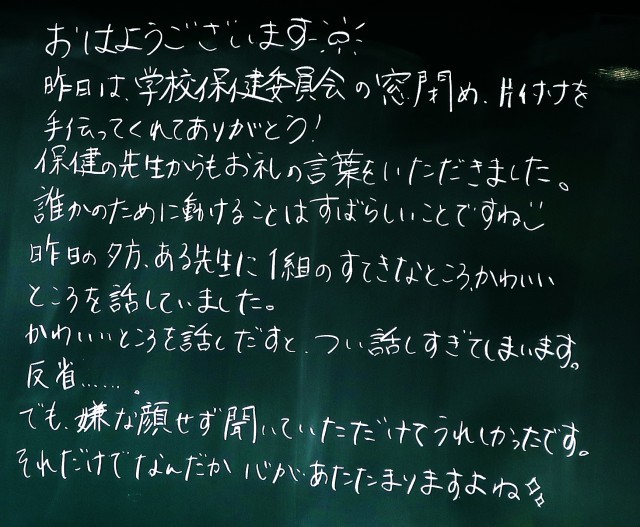 おはようございます
昨日は、学校保健委員会の窓閉め、片付けを
手伝ってくれてありがとう！
保健の先生からもお礼の言葉をいただきました。
誰かのために動けることはすばらしいことですね
昨日の夕方、ある先生に1組のすてきなところ、かわいい
ところを話していました。
かわいいところを話しだすと、つい話しすぎてしまいます。
反省……。
でも、嫌な顔せず聞いていただけてうれしかったです。
それだけでなんだか心があたたまりますよね